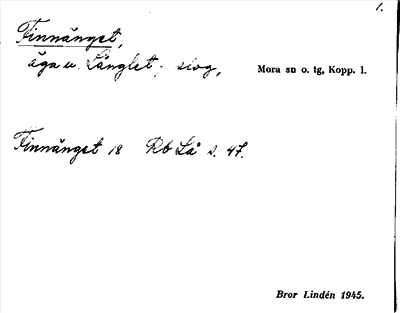 1.
Finnänget,
äga u. Långlet; slog,
Mora sn o. tg, Kopp. l.
Finnänget 18 Rb Lå s. 47.
Bror Lindén 1945.